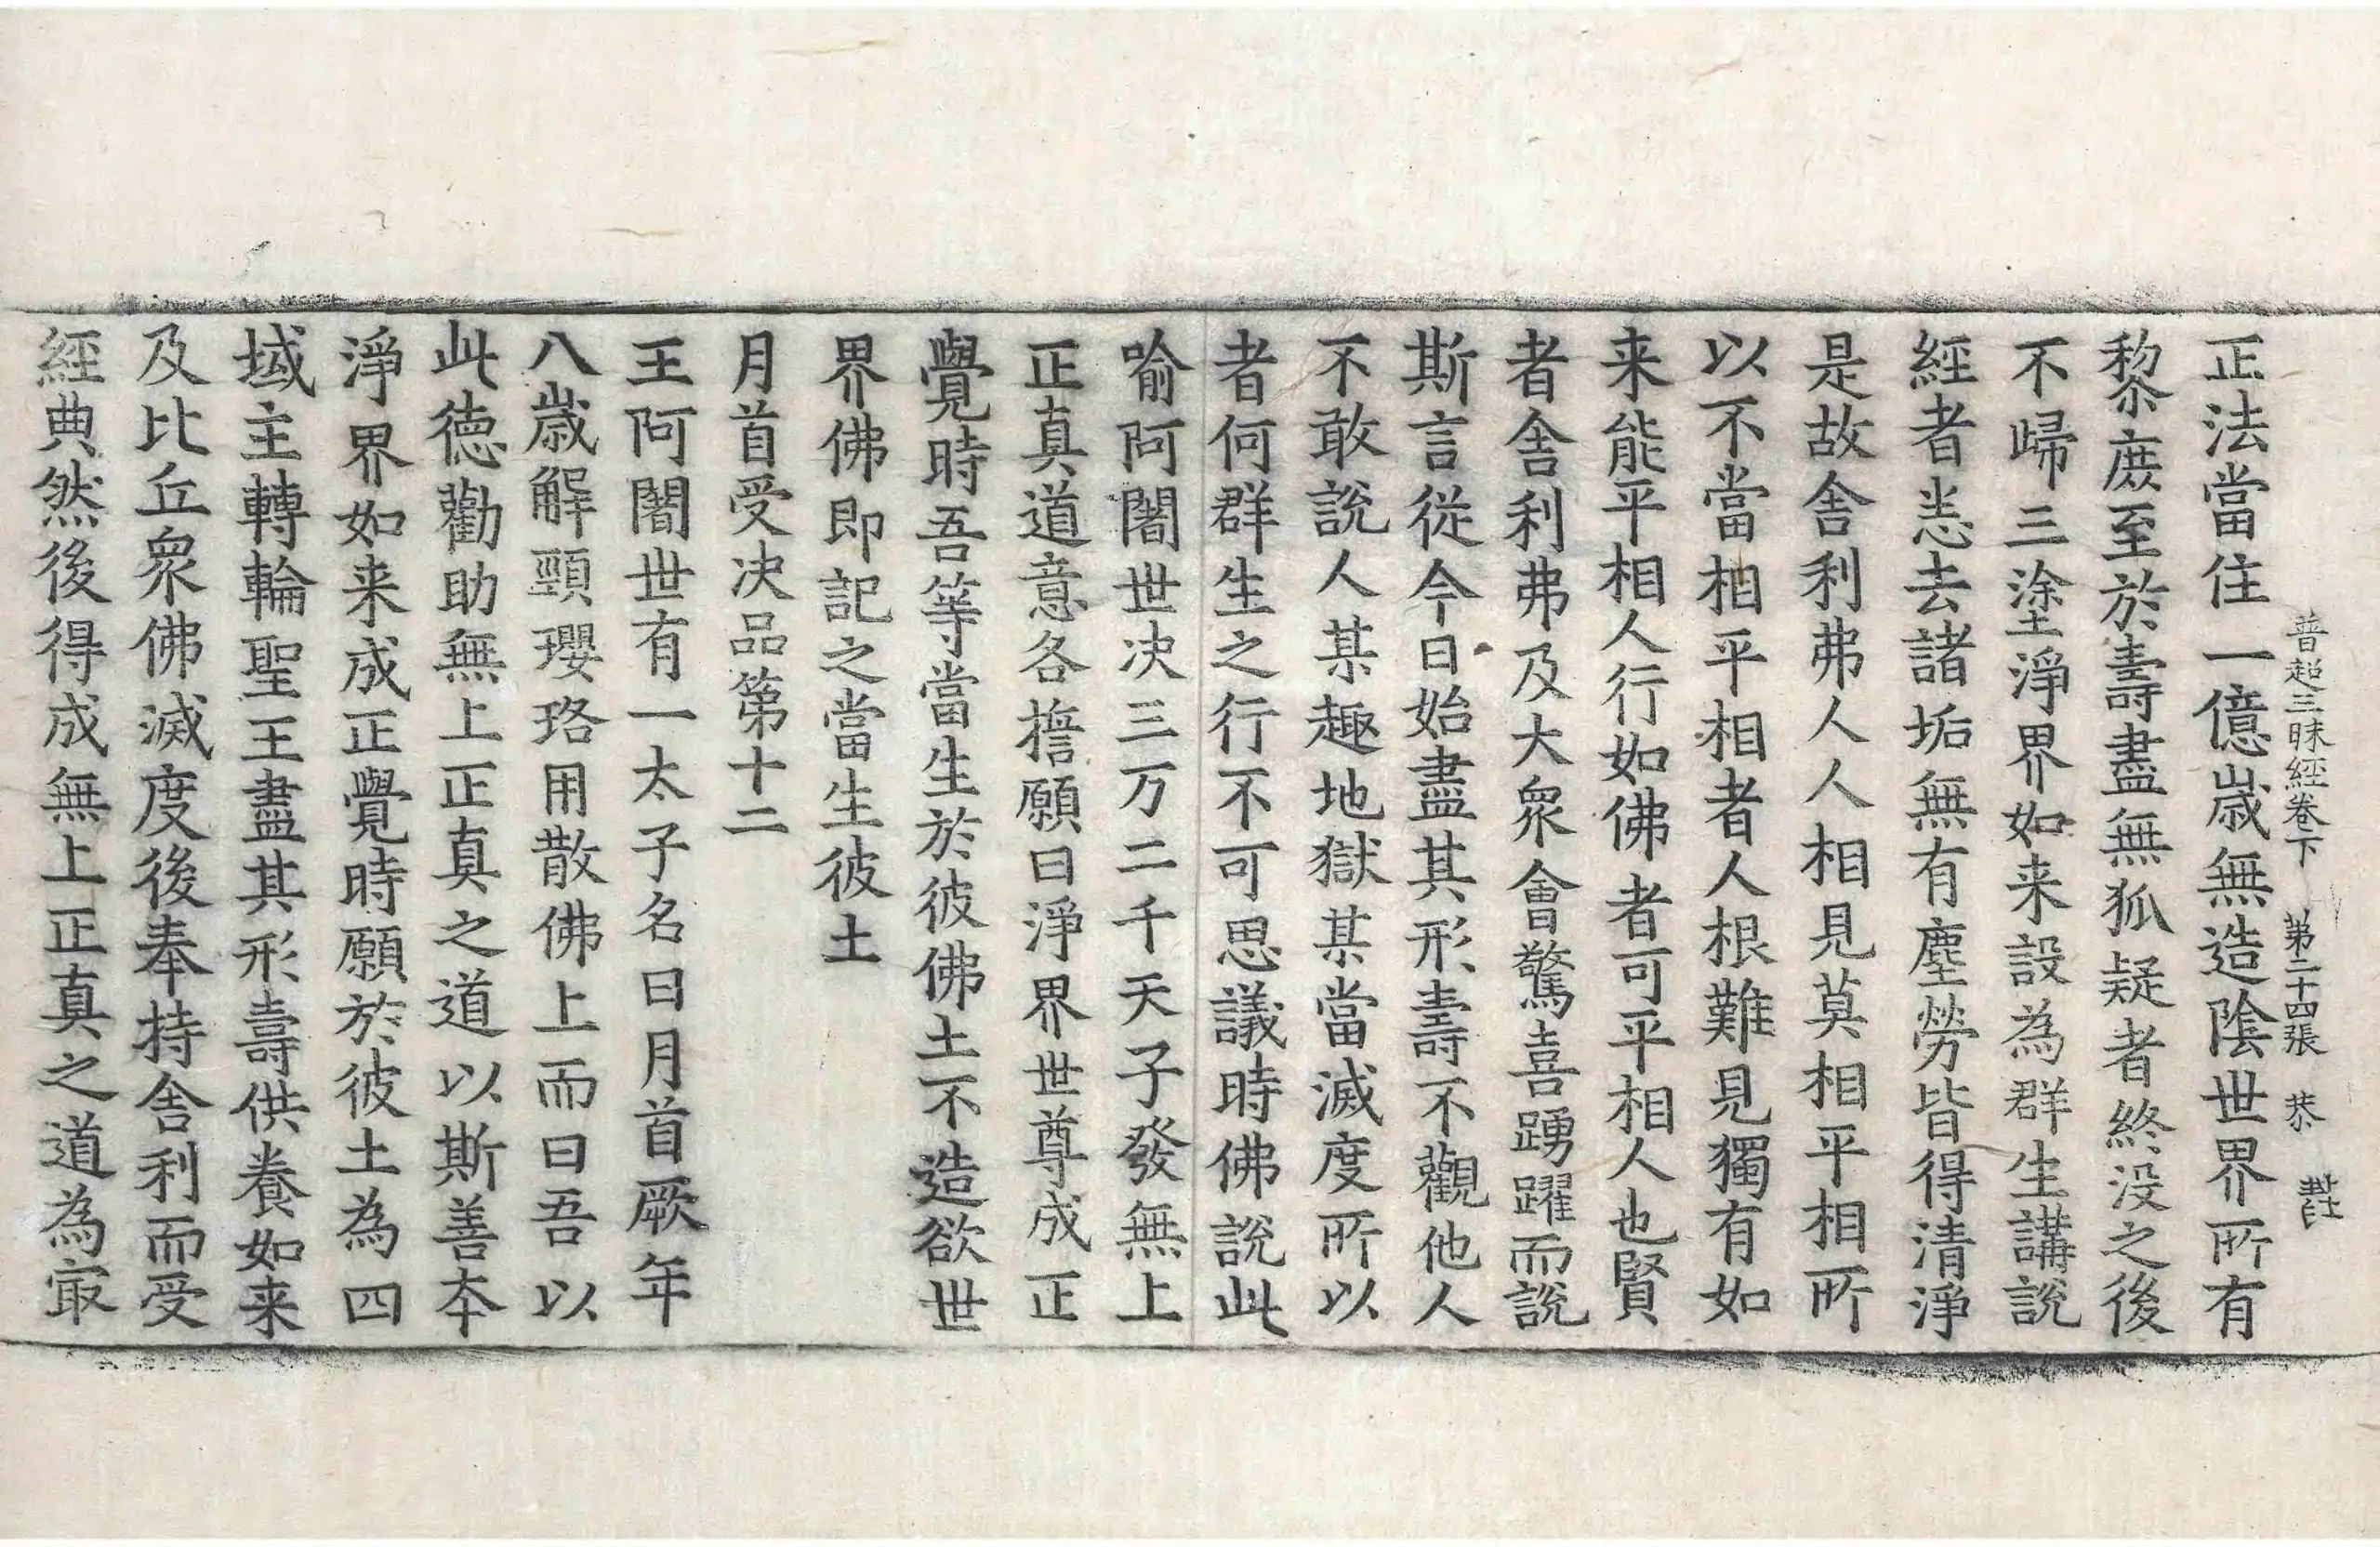 普超三昧經卷下 第二十四張 恭
正法當住一億歲無造陰世界所有
黎庶至於壽盡無狐疑者終没之後
不歸三塗淨界如来設為群生講說
經者悉去諸垢無有塵勞皆得清淨
是故舍利弗人人相見莫相平相所
以不當相平相者人根難見獨有如
来能平相人行如佛者可平相人也賢
者舍利弗及大衆會驚喜踴躍而說
斯言從今日始盡其形壽不觀他人
不敢說人某趣地獄某當滅度所以
者何群生之行不可思議時佛說此
喻阿闍世决三万二千天子發無上
正真道意各擔願曰淨界世尊成正
覺時吾等當生於彼佛土不造欲世
界佛即記之當生彼土
月首受决品第十二
王阿闍世有一太子名曰月首厥年
八歲解頸瓔珞用散佛上而曰吾以
此德勸助無上正真之道以斯善本
淨界如来成正覺時願於彼土為四
域主轉輪聖王盡其形壽供養如来
及比丘衆佛滅度後奉持舍利而受
經典然後得成無上正真之道為㝡